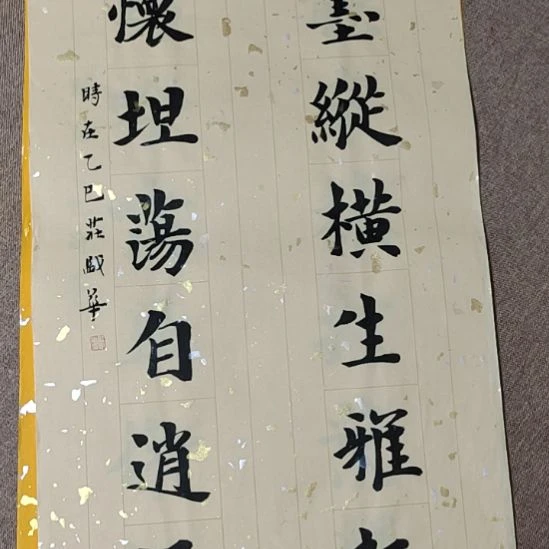 墨縱橫生雅
懷坦蕩自逍
時在乙巳莊國華